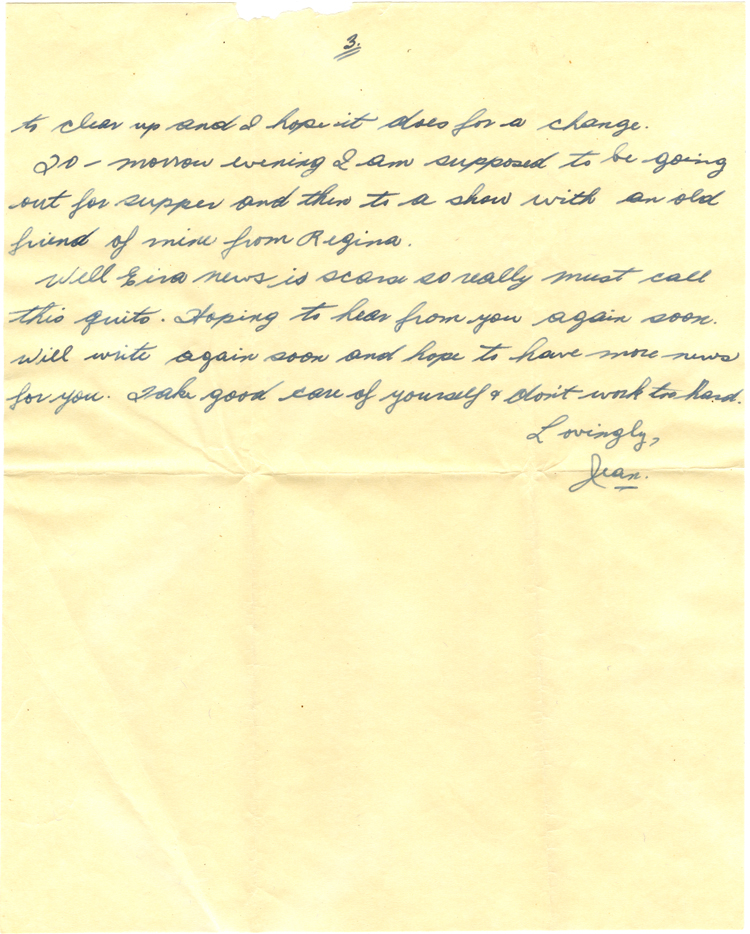 3.
to clear up and I hope it does for a change.
To-morrow evening I am supposed to be going
out for supper and then to a show with an old
friend of mine from Regina.
Well Eira news is scarce so really must call
this quits. Hoping to hear from you again soon.
Will write again soon and hope to have more news
for you. Take good care of yourself & don't work too hard.
Lovingly,
Jean.